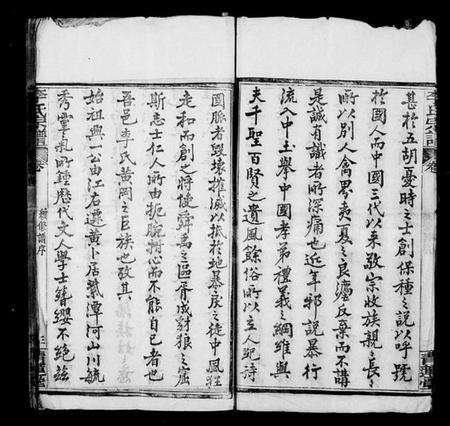 甚於五胡憂時之士創保種之說以呼號
於國人而中國三代以來敬宗收族親親長長
所以別人禽界夷夏之良 反棄而不講
是誠有識者所深痛也近年邪說暴行
流入中土舉中國孝弟禮義之綱維與
夫千聖百賢之遺風餘俗所以立人紀持
國脈者毀壞摧滅以抵於地暴戾之徒中風狂
走和而創之將使舜禹之區胥成豺狼之窟
斯志士仁人所由扼腕拊心而不能自已者也
吾邑李氏黃岡之巨族也攷其
始祖興一公由江右遷黃卜居 潭河山川毓
秀靈氣所鍾歷代文人學士簪纓不絕茲
李氏宗譜
卷
續修譜序
二